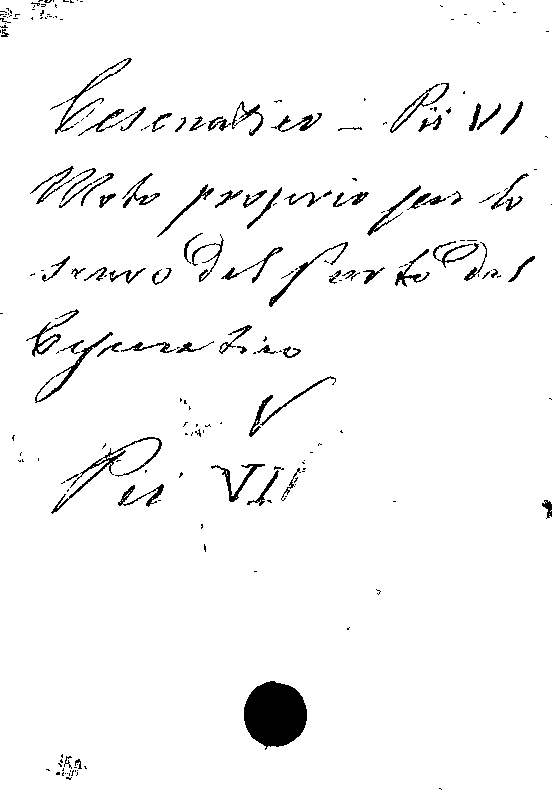 Cesenatico - Pii VI
Moto proprio per lo
scavo del Porto del
Cesenatico
V
Pii VII